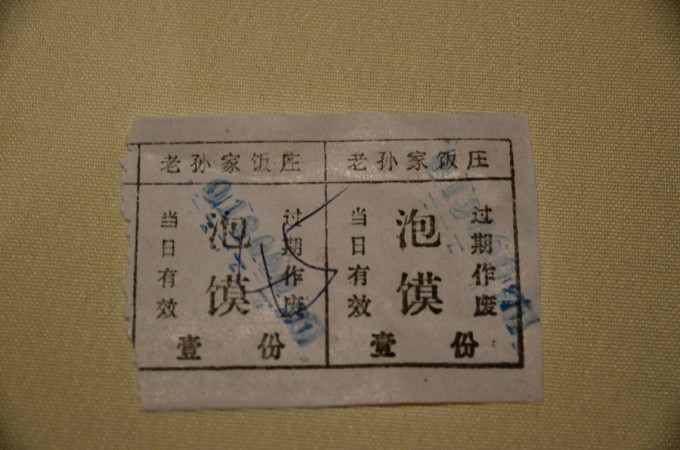 老孙家饭庄 老孙家饭庄
当日有效 泡馍 过期作废 当日有效 泡馍 过期作废
壹份 壹份